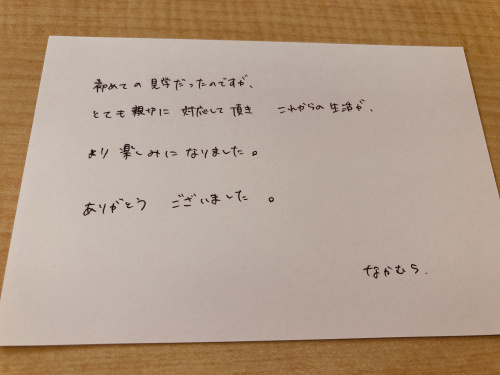 初めての 見学だったのですが、
とても 親切に 対応して 頂き これからの 生活が、
より 楽しみに なりました。
ありがとう ございました 。
なかむら.